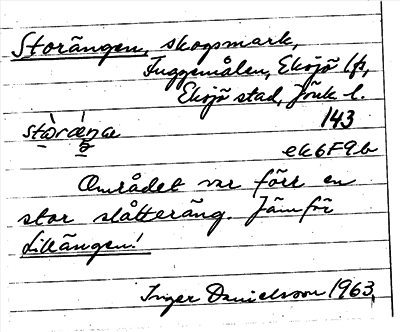 Storängen, skogsmark,
Fuggemålen, Eksjö lfs,
Eksjö stad, Jönk l.
143
ek6F9b
Området var förr en
stor slåtteräng. Jämför
Lillängen!
Inger Danielsson 1963.